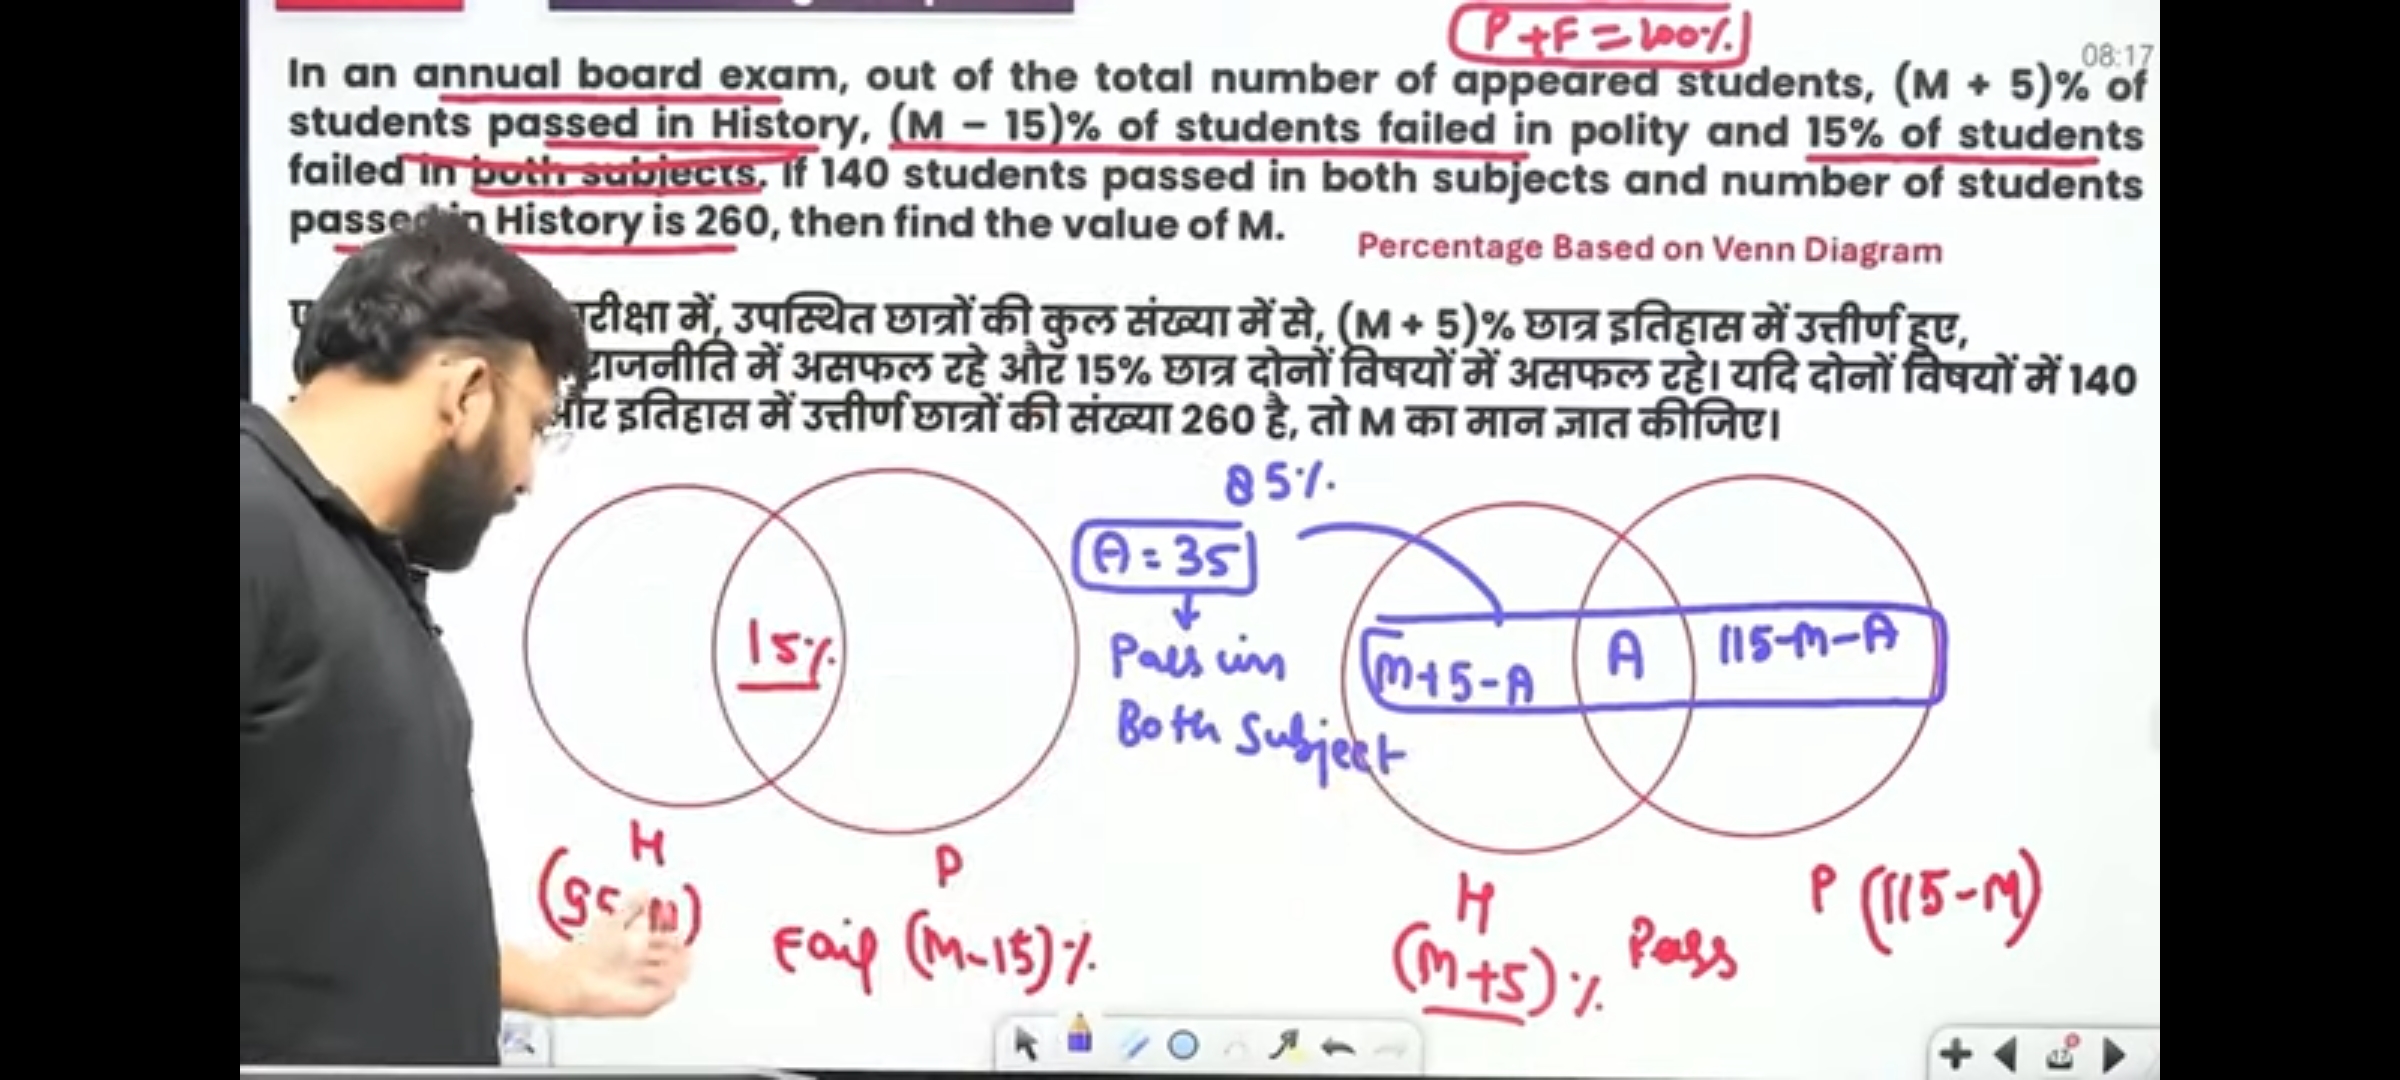 P+F=100%
08:17
In an annual board exam, out of the total number of appeared students, (M + 5)% of
students passed in History, (M – 15)% of students failed in polity and 15% of students
failed in both subjects. If 140 students passed in both subjects and number of students
passed in History is 260, then find the value of M.
Percentage Based on Venn Diagram
में, उपस्थित छात्रों की कुल संख्या में से, (M + 5)% छात्र इतिहास में उत्तीर्ण हुए,
राजनीति में असफल रहे और 15% छात्र दोनों विषयों में असफल रहे। यदि दोनों विषयों में 140
और इतिहास में उत्तीर्ण छात्रों की संख्या 260 है, तो M का मान ज्ञात कीजिए।
85%
A=35
15%
Pass in
Both Subject
m+5-A A 115-M-A
H
P
Fail (M-15)%
H
(m+5)%
Pass
P (115-M)